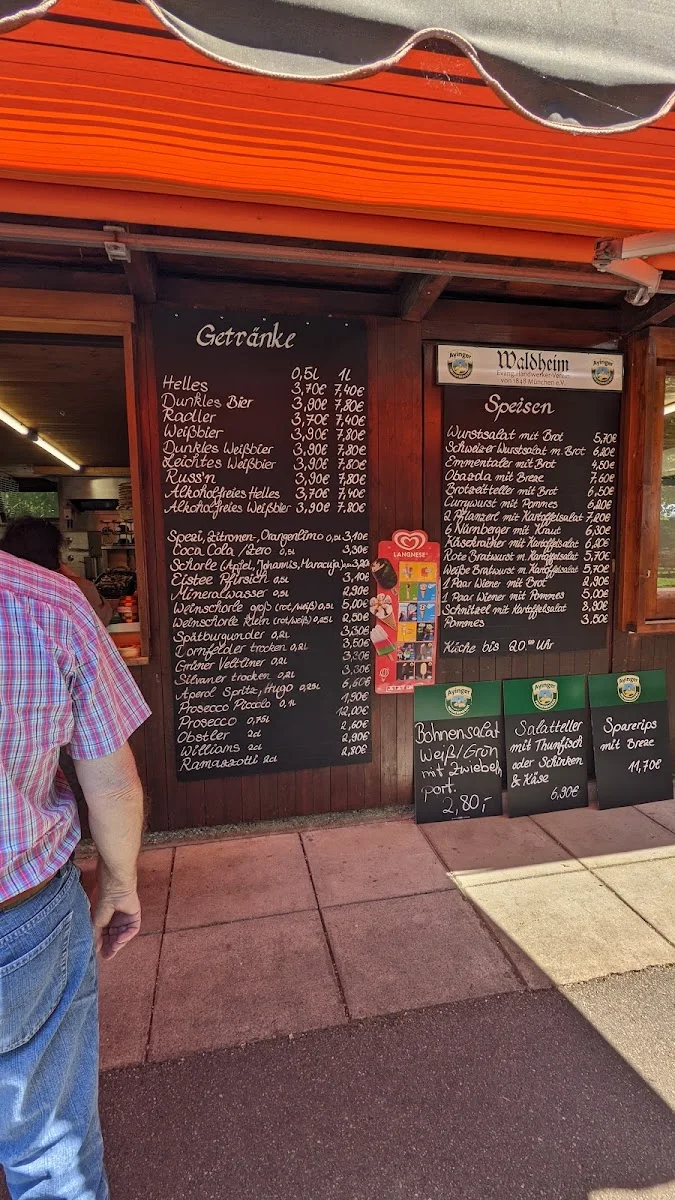 Getränke
0,5l 1l
Helles 3,70€ 7,40€
Dunkles Bier 3,90€ 7,80€
Radler 3,70€ 7,40€
Weißbier 3,90€ 7,80€
Dunkles Weißbier 3,90€ 7,80€
Leichtes Weißbier 3,90€ 7,80€
Russ'n 3,90€ 7,80€
Alkoholfreies Helles 3,70€ 7,40€
Alkoholfreies Weißbier 3,90€ 7,80€
Spezi, Zitronen-, Orangenlimo 0,5l 3,10€
Coca Cola /Zero 0,5l 3,30€
Schorle (Apfel, Johannis, Maracuja) 3,20
Eistee Pfirsich 0,5l 3,10€
Mineralwasser 0,5l 2,90€
Weinschorle groß (rot/weiß) 0,5l 5,00€
Weinschorle klein (rot/weiß) 0,25l 2,50€
Spätburgunder 0,2l 3,30€
Dornfelder trocken 0,2l 3,50€
Grüner Veltliner 0,2l
Silvaner trocken 0,2l 3,30€
Aperol Spritz, Hugo 0,25l 6,60€
Prosecco Piccolo 0,1l 1,90€
Prosecco 0,75l 12,00€
Obstler 2cl 2,60€
Williams 2cl 2,90€
Ramazzotti 2cl 2,80€
LANGNESE
Ayinger Waldheim Ayinger
Evang. Handwerker-Verein
von 1848 München e.V.
Speisen
Wurstsalat mit Brot 5,70€
Schweizer Wurstsalat m. Brot 6,20€
Emmentaler mit Brot 4,50€
Obazda mit Breze 7,60€
Brotzeitteller mit Brot 6,50€
Currywurst mit Pommes 6,20€
2 Pflanzerl mit Kartoffelsalat 7,20€
6 Nürnberger mit Kraut 6,30€
Käsekrainer mit Kartoffelsalat 6,20€
Rote Bratwurst m. Kartoffelsalat 5,70€
Weiße Bratwurst m. Kartoffelsalat 5,70€
1 Paar Wiener mit Brot 2,90€
1 Paar Wiener mit Pommes 5,00€
Schnitzel mit Kartoffelsalat 8,90€
Pommes 3,50€
Küche bis 20.00 Uhr
Ayinger
Bohnensalat
Weiß/Grün
mit Zwiebeln
port.
2,80,-
Ayinger
Salatteller
mit Thunfisch
oder Schinken
& Käse
6,90€
Ayinger
Sparerips
mit Breze
11,70€